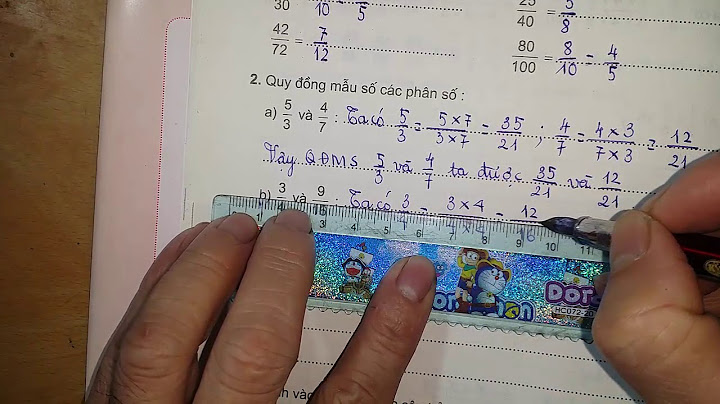 30 10 5
25/40 = 5/8
42/72 = 7/12
80/100 = 8/10 = 4/5
2. Quy đồng mẫu số các phân số :
a) 5/3 và 4/7 : Ta có 5/3 = 5 x 7 / 3 x 7 = 35/21 ; 4/7 = 4 x 3 / 7 x 3 = 12/21
Vậy QĐMS 5/3 và 4/7 ta được 35/21 và 12/21
b) 3/4 và 9/16 : Ta có 3/4 = 3 x 4 / 4 x 4 = 12/16
1 3 4 6 7 8 9 10 11
Doremon
HC072-20